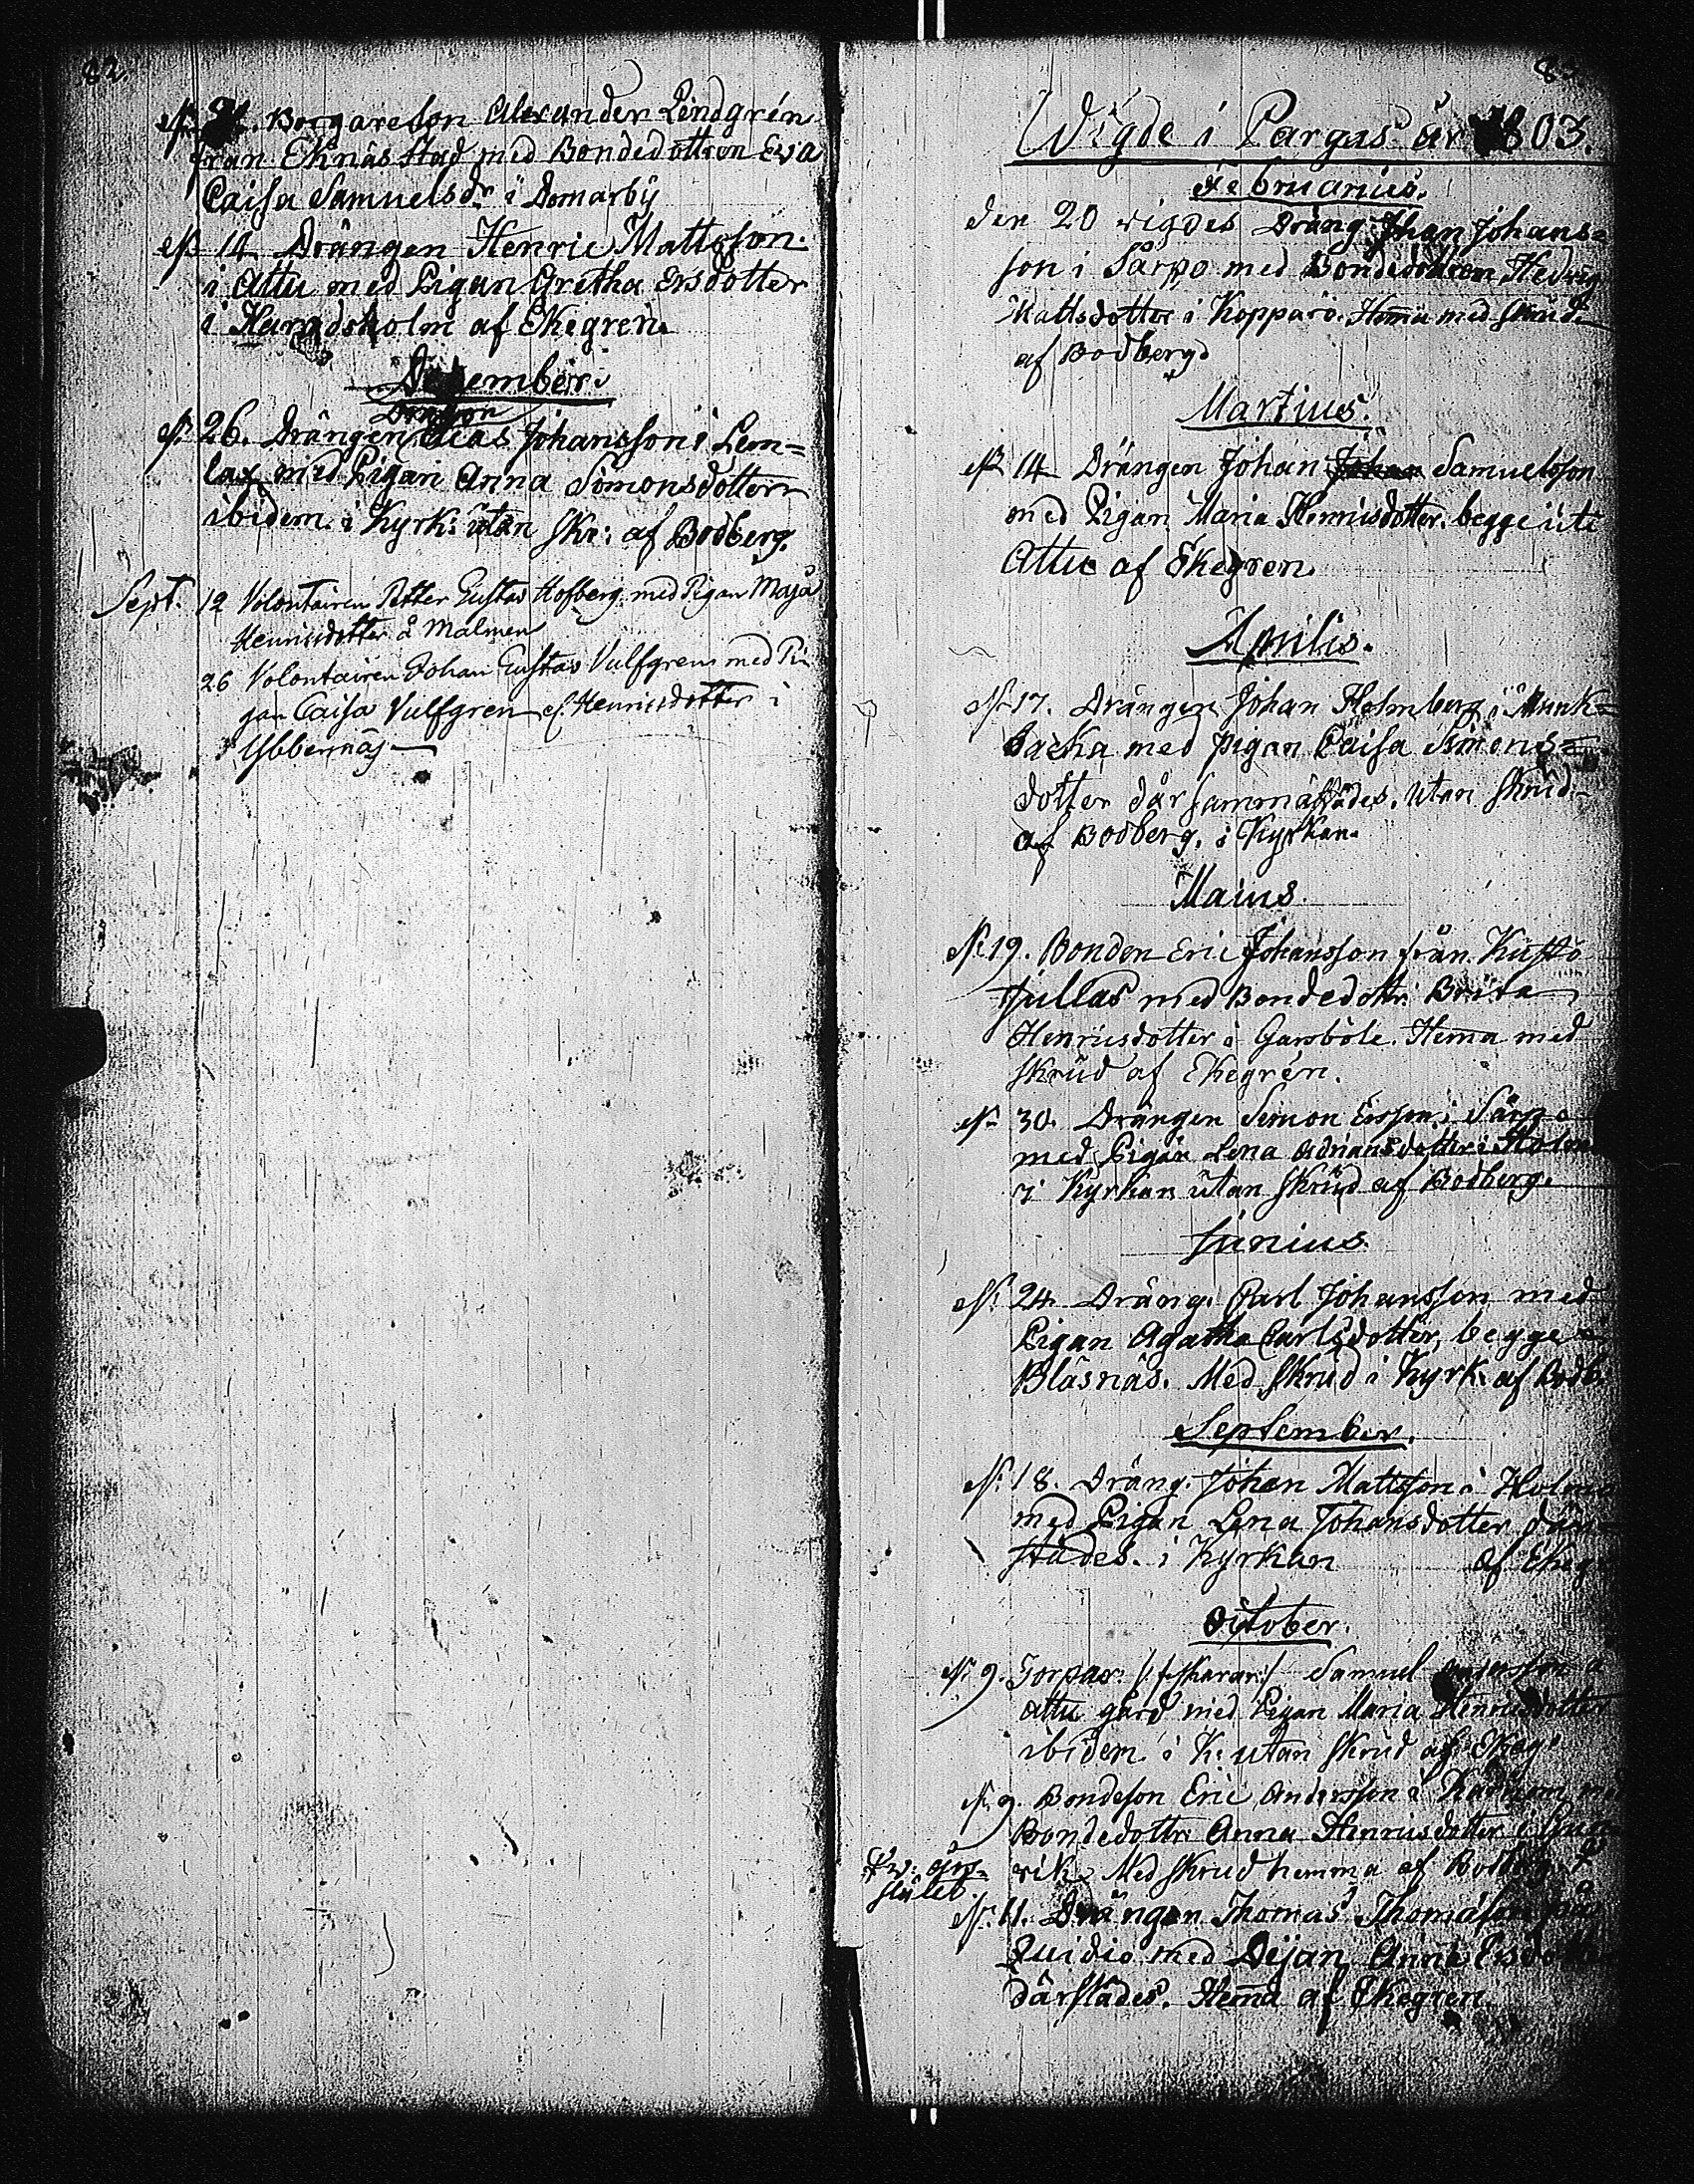 82.
Borgareson Alexander Lindgrén
från Eknäs stad med Bondedottren Eva
Caisa Samuelsdr i Domarby
14 Drängen Henric Mattsson
i Attu med Pigan Gretha Ersdotter
i af Ekegren.
December.
Dragon
26. Drängen Elias Johansson i Lem=
lax med Pigan Anna Simonsdotter
ibidem. i Kyrk: utan skr: af Bodberg.
Sept. 12 Volontairen Petter Gustav Hofberg med Pigan Maja
Henricsdotter å Malmen
26 Volontairen Johan Gustav Vulfgren med Pi
gan Caisa Vulfgren el. Henricsdotter i
Ybbernäs
Wigde i Pargas år 1803.
Februarius.
den 20 vigdes Dräng Johan Johans=
son i Särpo med Bondedottren Hedvig
Mattsdotter i Kopparö. Hem̄a med skrud
af Bodberg
Martius.
14 Drängen Johan Johan Samuelsson
med Pigan Maria Henricsdotter. begge uti
Attu af Ekegren.
Aprilis.
17. Drängen Johan Holmberg i Munk=
backa med pigan Caisa Simons=
dotter där sammastädes. Utan skrud
af Bodberg. i Kyrkan.
Maius.
19. Bonden Eric Johansson från Kustö
Jullas med Bondedottr: Brita
Henricsdotter i Garsböle. Hem̄a med
skrud af Ekegrén.
30. Drängen Simon Ersson i Särpo
med Pigan Lena Adriansdotter i Holm
i Kyrkan utan skrud af Bodberg.
Junius.
24 Dräng. Carl Johansson med
Pigan Agatha Carlsdotter, begge i
Bläsnäs. Med skrud i Kyrk. af Bodb.
September.
18. Dräng. Johan Mattsson i Holma
med Pigan Lena Johansdotter där=
städes. i Kyrkan af Ekeg
October.
9. Torpar. Samuel
Attu gård med Pigan Maria Henricsdotter
ibidem i K: utan skrud af Ekeg:
9. Bondeson Eric Andersson i
Bondedottr: Anna Henricsdotter i
vik. Med skrud hemma af Bodberg.
11. Drängen Thomas Thomasson
Quidio med Pijan Anna Ersdotter
därstädes. Hem̄a af Ekegren.